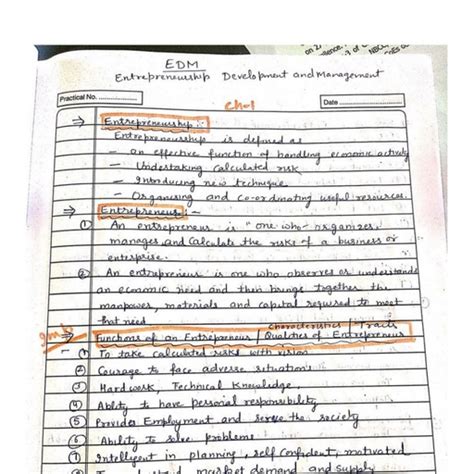 EDM
Entrepreneurship Development and Management
Practical No.
Date
Ch-1
⇒ Entrepreneurship :-
Entrepreneurship is defined as
- an effective function of handling economic activity
- Undertaking calculated risk
- Introducing new technique
- Organising and co-ordinating useful resources.
⇒ Entrepreneur :-
① An entrepreneur is "one who organizes,
manages and calculate the risks of a business or
enterprise.
② An entrepreneur is one who observes or understands
an economic need and then brings together the
manpower, materials and capital required to meet
that need
Characteristics / Traits
⇒ Functions of an Entrepreneur / Qualities of Entrepreneur
① To take calculated risks with vision
② Courage to face adverse situations
③ Hardwork, Technical Knowledge.
④ Ability to have personal responsibility
⑤ Provides Employment and serve the society
⑥ Ability to solve problems
⑦ Intelligent in planning, self confident, motivated
market demand and supply